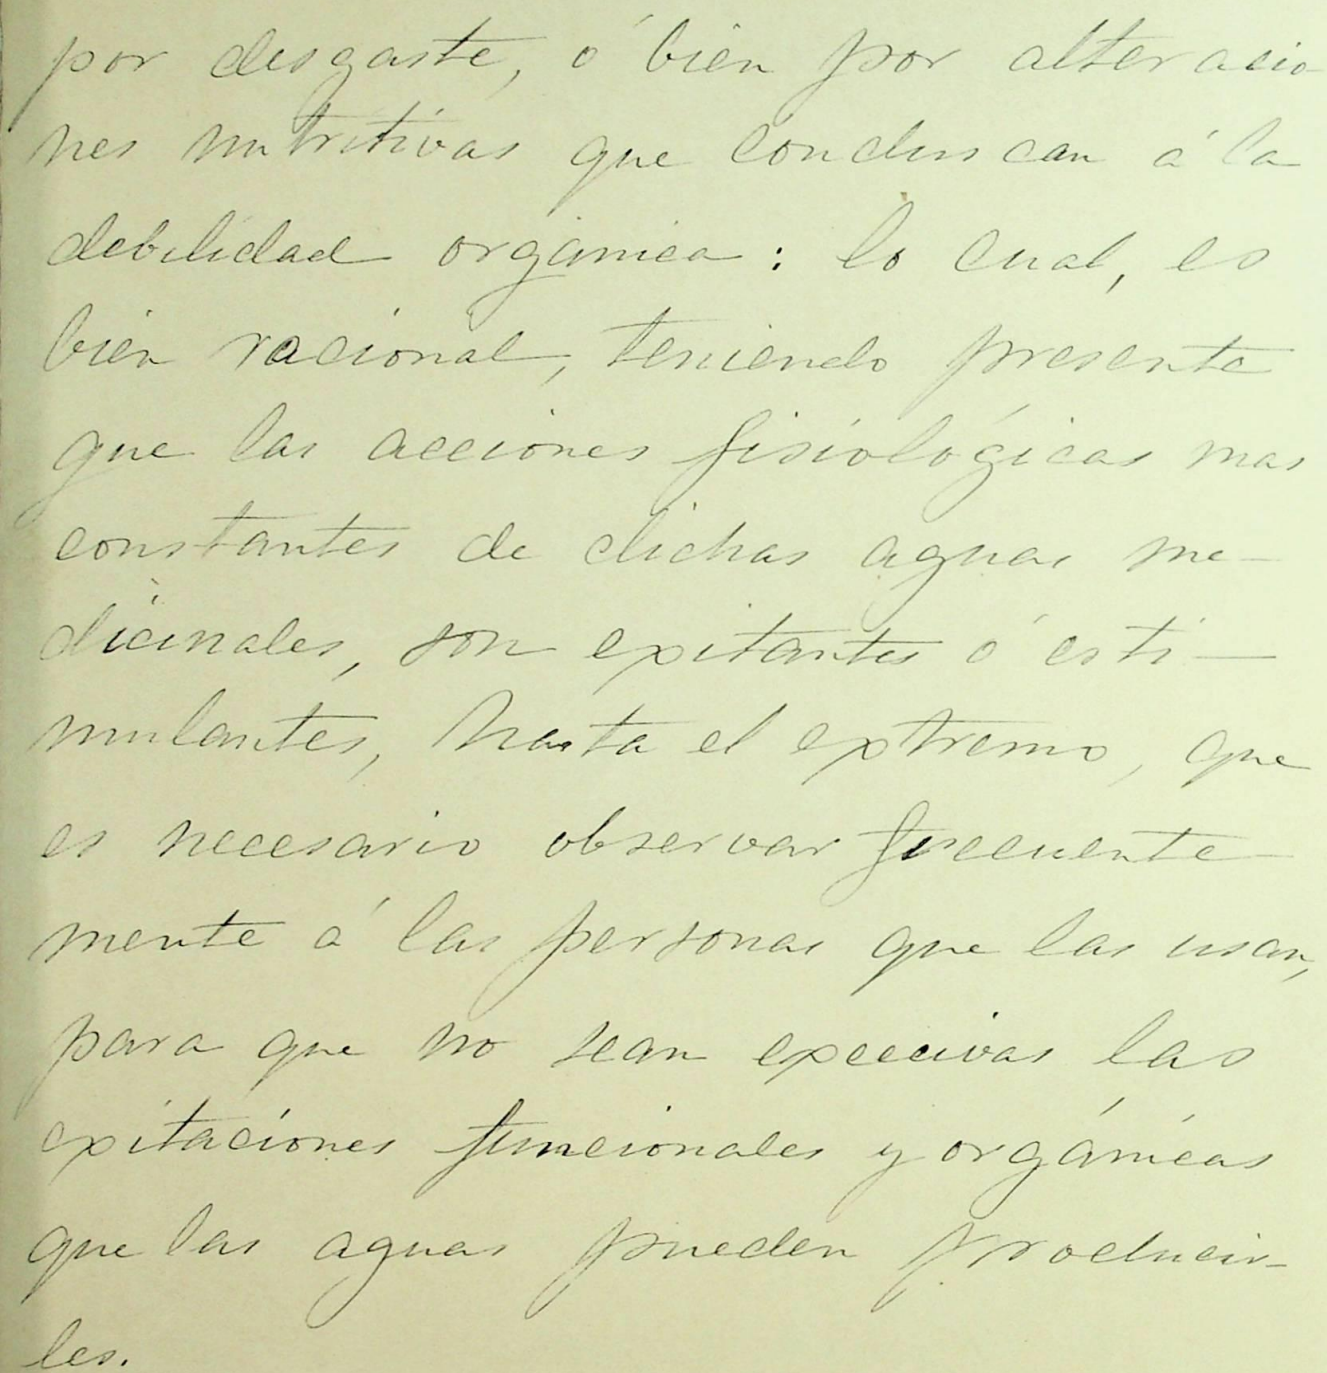 por desgaste, ó bien por alteracio
nes nutritivas que conduscan á la
debilidad orgánica: lo cual, es
bien racional, teniendo presente
que las acciones fisiológicas mas
constantes de dichas aguas me-
dicinales, son exitantes ó esti-
mulantes, hasta el extremo, que
es necesario observar frecuente-
mente á las personas que las usan,
para que no sean excecivas las
exitaciones funcionales y orgánicas
que las aguas pueden producir-
les.